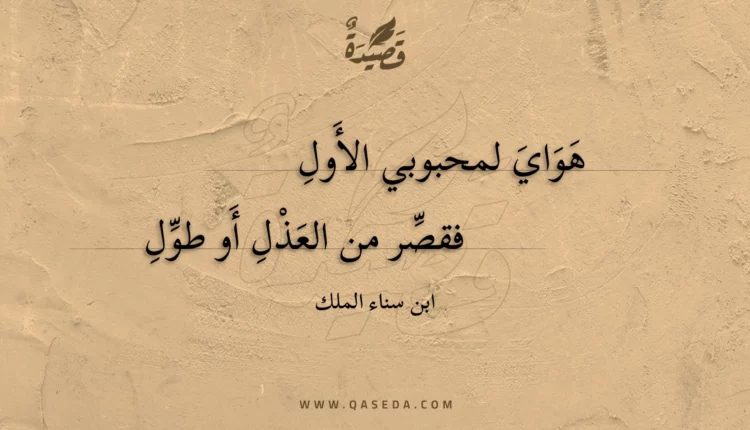 قَصِيْدَةٌ
هَوَايَ لمحبوبي الأَولِ
فقصِّر من العَذْلِ أَو طوِّلِ
ابن سناء الملك
WWW.QASEDA.COM